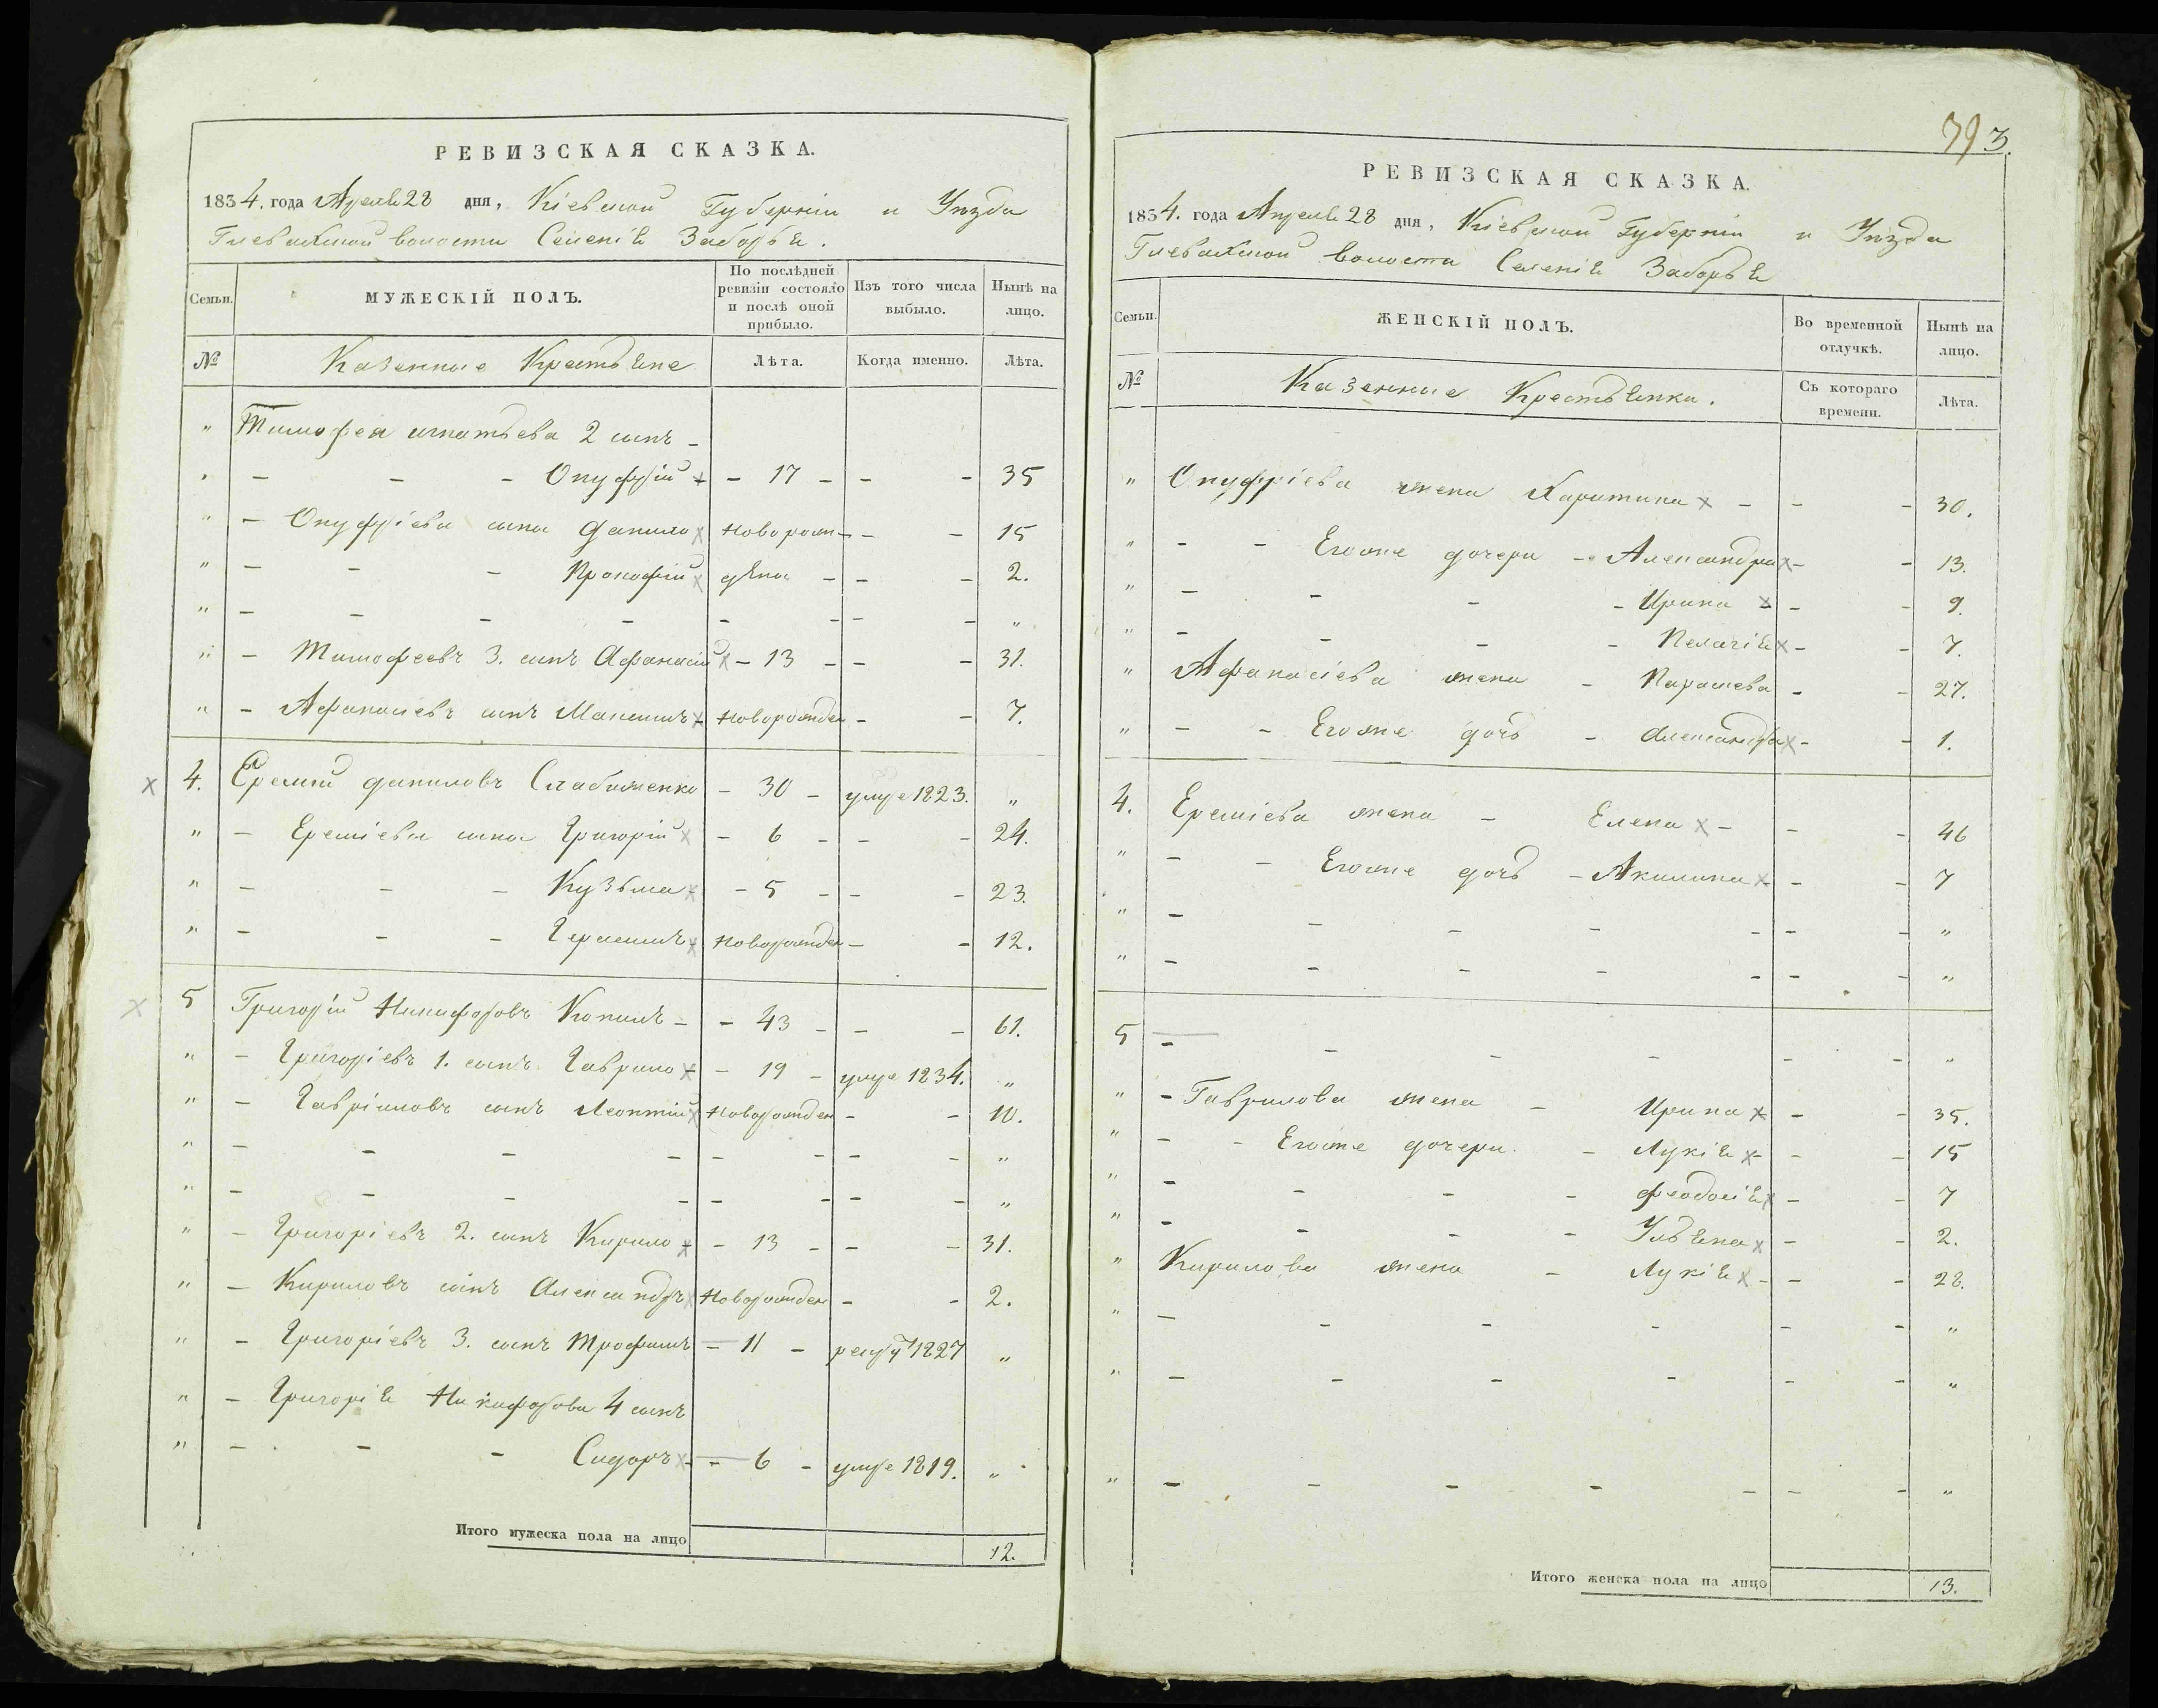 РЕВИЗСКАЯ СКАЗКА.
1834. года Апреля 28 дня, Кіевской Губерніи и Уѣзда
Глевахской волости Селенія Заборья.
Семьи.
МУЖЕСКІЙ ПОЛЪ.
По послѣдней ревизіи состояло и послѣ оной прибыло.
Изъ того числа выбыло.
Нынѣ на лицо.
№
Казенные Крестьяне
Лѣта.
Когда именно.
Лѣта.
" Тимофея игнатьева 2 сынъ -
" - - - Онуфрій - 17 - - - 35
" - Онуфріева сына Данило новорож- - - 15
" - - - Прокофій дена - - - 2.
" - - - - - - - - "
" - Тимофеевъ 3. сынъ Афанасій - 13 - - - 31.
" - Афанасіевъ сынъ Максимъ - новорожден - - 7.
4. Еремій даниловъ Слабиженко - 30 - умре 1823. "
" - Ереміева сына Григорій - 6 - - - 24.
" - - - Кузьма - 5 - - - 23.
" - - - Герасимъ новорожден - - 12.
5 Григорій Никифоровъ Копилъ - - 43 - - - 61.
" - Григоріевъ 1. сынъ Гаврило - 19 - умре 1834. "
" - Гавріиловъ сынъ Леонтій новорожден - - 10.
" - - - - - - - - "
" - - - - - - - - "
" - Григоріевъ 2. сынъ Кирило - 13 - - - 31.
" - Кириловъ сынъ Александръ новорожден - - 2.
" - Григоріевъ 3. сынъ Трофимъ - 11 - рекру 1827 "
" - Григорія Никифорова 4 сынъ
" - - - Сидоръ - 6 - умре 1819. "
Итого мужеска пола на лицо 12.
79 3.
РЕВИЗСКАЯ СКАЗКА.
1834. года Апреля 28 дня, Кіевской Губерніи и Уѣзда
Глевахской волости Селенія Заборья
Семьи.
ЖЕНСКІЙ ПОЛЪ.
Во временной отлучкѣ.
Нынѣ на лицо.
№
Казенные Крестьянки.
Съ котораго времени.
Лѣта.
" Онуфріева жена Харитина - - - 30.
" - - Егоже дочери - Александра - - 13.
" - - - - Ирина - - 9.
" - - - - Пелагія - - 7.
" Афанасіева жена - Парасцева - - 27.
" - - Егоже дочь - Александра - - 1.
4. Ереміева жена - Елена - - - 46
" - - Егоже дочь - Акилина - - 7
" - - - - - - - "
" - - - - - - - "
5 - - - - - - "
" - Гаврилова жена - Ирина - - 35.
" - - Егоже дочери. - Лукія - - 15
" - - - - Феодосія - - 7
" - - - - Ульяна - - 2.
" Кирилова жена - Лукія - - - 28.
" - - - - - - "
" - - - - - - "
" - - - - - - - "
Итого женска пола на лицо 13.